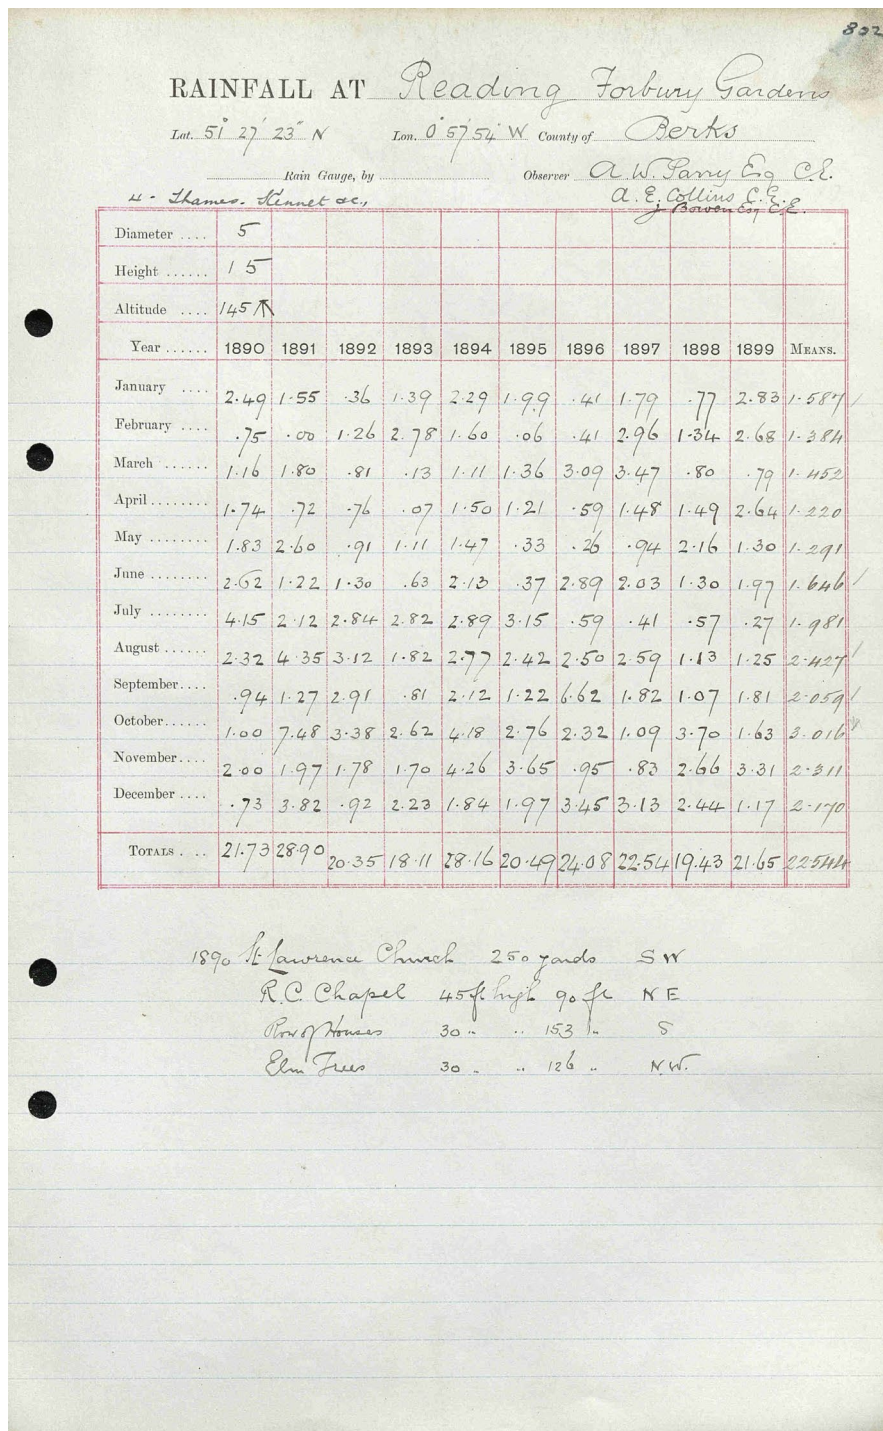 802
RAINFALL AT Reading Forbury Gardens
Lat. 51° 27' 23" N Lon. 0° 57' 54" W County of Berks
Rain Gauge, by Observer A. W. Parry Esq C.E.
4 - Thames. Kennet &c, A. E. Collins C.E.
J Bowen Esq C.E.
Diameter .... 5
Height ...... 15
Altitude .... 145
Year ...... 1890 1891 1892 1893 1894 1895 1896 1897 1898 1899 MEANS.
January .... 2.49 1.55 .36 1.39 2.29 1.99 .41 1.79 .77 2.83 1.587
February .... .75 .00 1.26 2.78 1.60 .06 .41 2.96 1.34 2.68 1.384
March ...... 1.16 1.80 .81 .13 1.11 1.36 3.09 3.47 .80 .79 1.452
April ........ 1.74 .72 .76 .07 1.50 1.21 .59 1.48 1.49 2.64 1.220
May ........ 1.83 2.60 .91 1.11 1.47 .33 .26 .94 2.16 1.30 1.291
June ........ 2.62 1.22 1.30 .63 2.13 .37 2.89 2.03 1.30 1.97 1.646
July ........ 4.15 2.12 2.84 2.82 2.89 3.15 .59 .41 .57 .27 1.981
August ...... 2.32 4.35 3.12 1.82 2.77 2.42 2.50 2.59 1.13 1.25 2.427
September .... .94 1.27 2.91 .81 2.12 1.22 6.62 1.82 1.07 1.81 2.059
October ...... 1.00 7.48 3.38 2.62 4.18 2.76 2.32 1.09 3.70 1.63 3.016
November .... 2.00 1.97 1.78 1.70 4.26 3.65 .95 .83 2.66 3.31 2.311
December .... .73 3.82 .92 2.23 1.84 1.97 3.45 3.13 2.44 1.17 2.170
TOTALS .... 21.73 28.90 20.35 18.11 28.16 20.49 24.08 22.54 19.43 21.65 22544
1890 St Lawrence Church 250 yards SW
R.C. Chapel 45 ft high 90 ft NE
Row of Houses 30 " " 153 " S
Elm Trees 30 " " 126 " N.W.